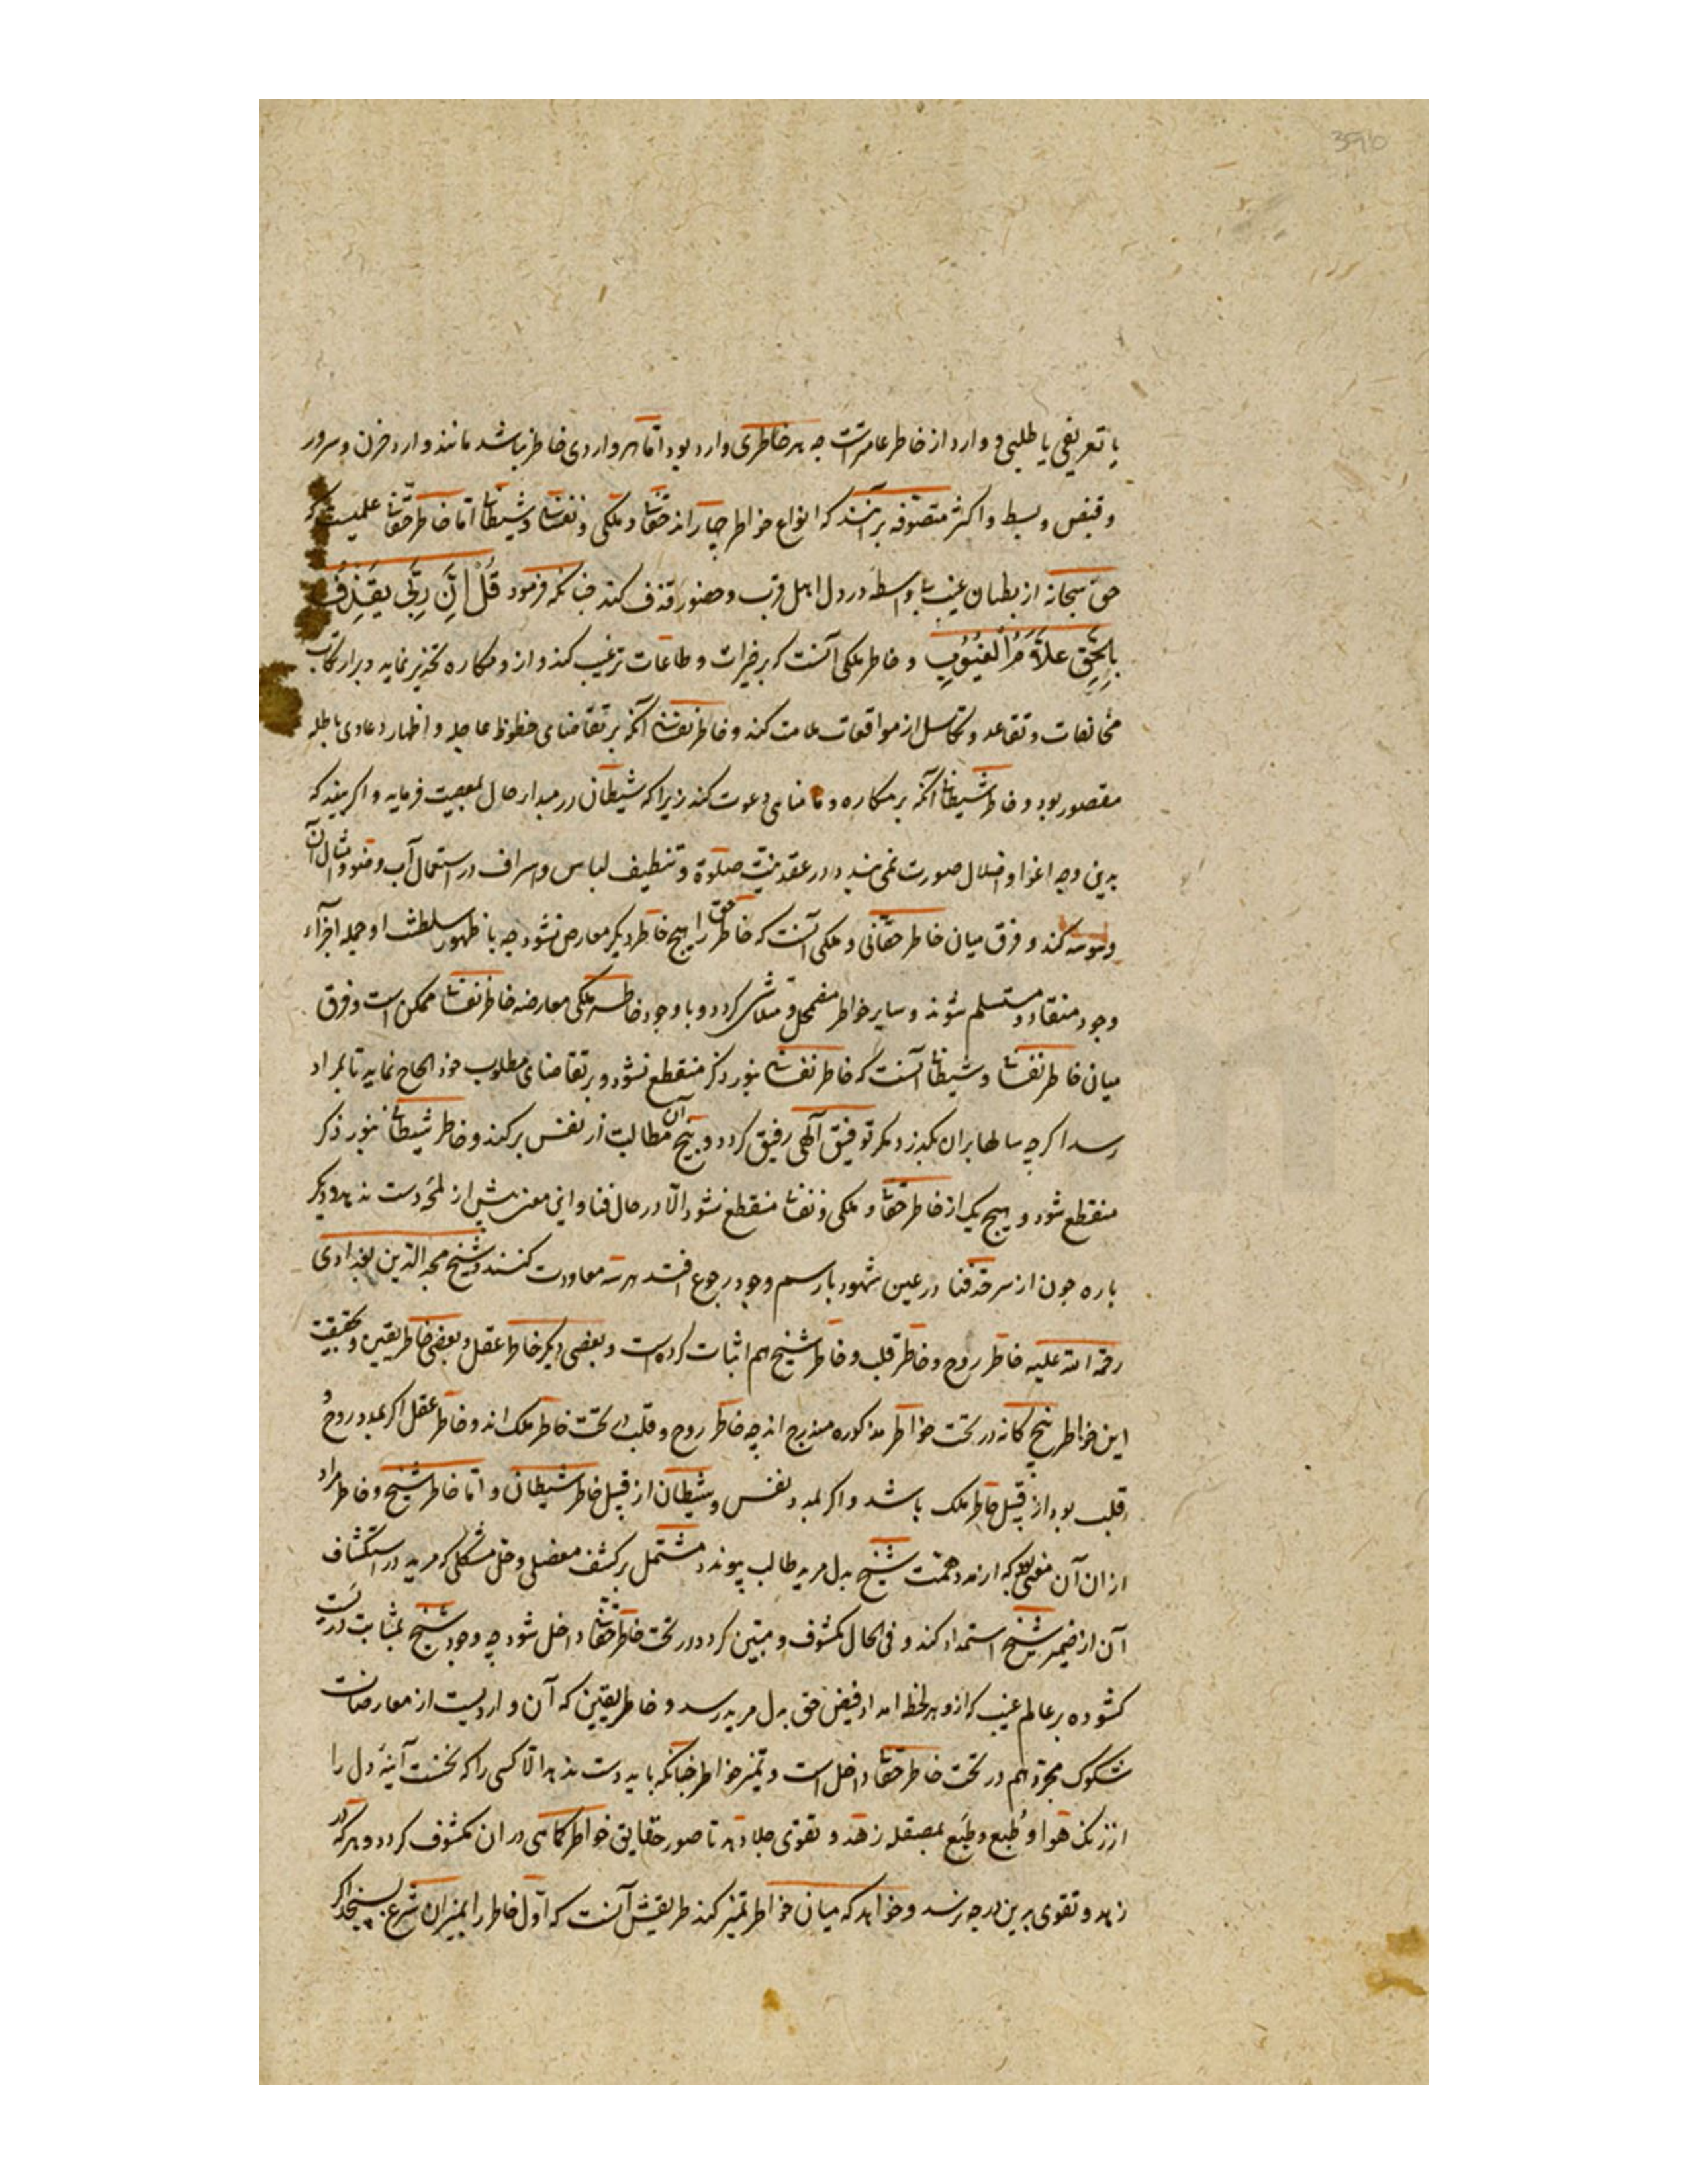 یا تعریفی یا طلبی و وارد از خاطر عامترست چه هر خاطری وارد بود اما هر واردی خاطر نباشد مانند وارد حزن و سرور
و قبض و بسط و اکثر متصوفه برآنند که انواع خواطر چهاراند حقانی و ملکی و نفسانی و شیطانی اما خاطر حقانی علمیست که
حق سبحانه از بطنان غیب بی‌واسطه در دل اهل قرب و حضور قذف کند چنانکه فرمود قُلْ اِنَّ رَبِّی یَقْذِفُ
بِالْحَقِّ عَلَّامُ الْغُیُوبِ و خاطر ملکی آنست که بر خیرات و طاعات ترغیب کند و از و مکاره تحذیر نماید و بر ارتکاب
مخالفات و تقاعد و تکاسل از موافقات ملامت کند و خاطر نفسانی آنکه بر تقاضای حظوظ عاجله و اظهار دعاوی باطله
مقصور بود و خاطر شیطانی آنکه بر مکاره و مناهی دعوت کند زیرا که شیطان در مبدا حال بمعصیت فرماید و اگر بیند که
بدین وجه اغوا و اضلال صورت نمی‌بندد در عقد نیت صلوة و تنظیف لباس و اسراف در استعمال آب وضو و امثال آن
وسوسه کند و فرق میان خاطر حقانی و ملکی آنست که خاطر حق را هیچ خاطر دیگر معارض نشود چه با ظهور سلطنت او جمله اجزاء
وجود منقاد و مستسلم شوند و سایر خواطر مضمحل و متلاشی گردد و با وجود خاطر ملکی معارضه خاطر نفسانی ممکن است و فرق
میان خاطر نفسانی و شیطانی آنست که خاطر نفسانی بنور ذکر منقطع نشود و بر تقاضای مطلوب خود الحاح نماید تا بمراد
رسد اگرچه سالها بران بگذرد مگر توفیق آلهی رفیق گردد و بیخ آن مطالبت از نفس برکند و خاطر شیطانی بنور ذکر
منقطع شود و هیچ یک از خاطر حقانی و ملکی و نفسانی منقطع نشود الا در حال فنا و این معنی بیش از لمحه دست ندهد و دیگر
باره چون از سرحد فنا در عین شهود با رسم وجود رجوع افتد هر سه معاودت کنند و شیخ مجد الدین بغدادی
رحمة الله علیه خاطر روح و خاطر قلب و خاطر شیخ هم اثبات کرده است و بعضی دیگر خاطر عقل و بعضی خاطر یقین و بحقیقت
این خواطر پنج کانه در تحت خواطر مذکوره مندرج اند چه خاطر روح و قلب در تحت خاطر ملک اند و خاطر عقل اگر بمدد روح و
قلب بود از قبیل خاطر ملک باشد و اگر بمدد نفس و شیطان از قبیل خاطر شیطانی و اما خاطر شیخ و خاطر مراد
از ان آن معنی که از مدد همت شیخ بدل مرید طالب پیوندد مشتمل بر کشف معضلی و حل مشکلی که مرید در استکشاف
آن از ضمیر شیخ استمداد کند و فی الحال مکشوف و مبین گردد در تحت خاطر حقانی داخل شود چه وجود شیخ بمثابت دریست
گشوده بر عالم غیب که از و هر لحظه امداد فیض حق بدل مرید رسد و خاطر یقین که آن واردیست از معارضات
شکوک مجرد هم در تحت خاطر حقانی داخل است و تمیز خواطر چنانکه باید دست ندهد الا کسی را که نخست آینه دل را
از زنگ هوا و طبع بمصقله زهد و تقوی جلا دهد تا صور حقایق خواطر کماهی در ان مکشوف گردد و هر که در
زهد و تقوی بدین درجه نرسد و خواهد که میان خواطر تمیز کند طریقش آنست که اول خاطر را بمیزان شرع بسنجد اگر